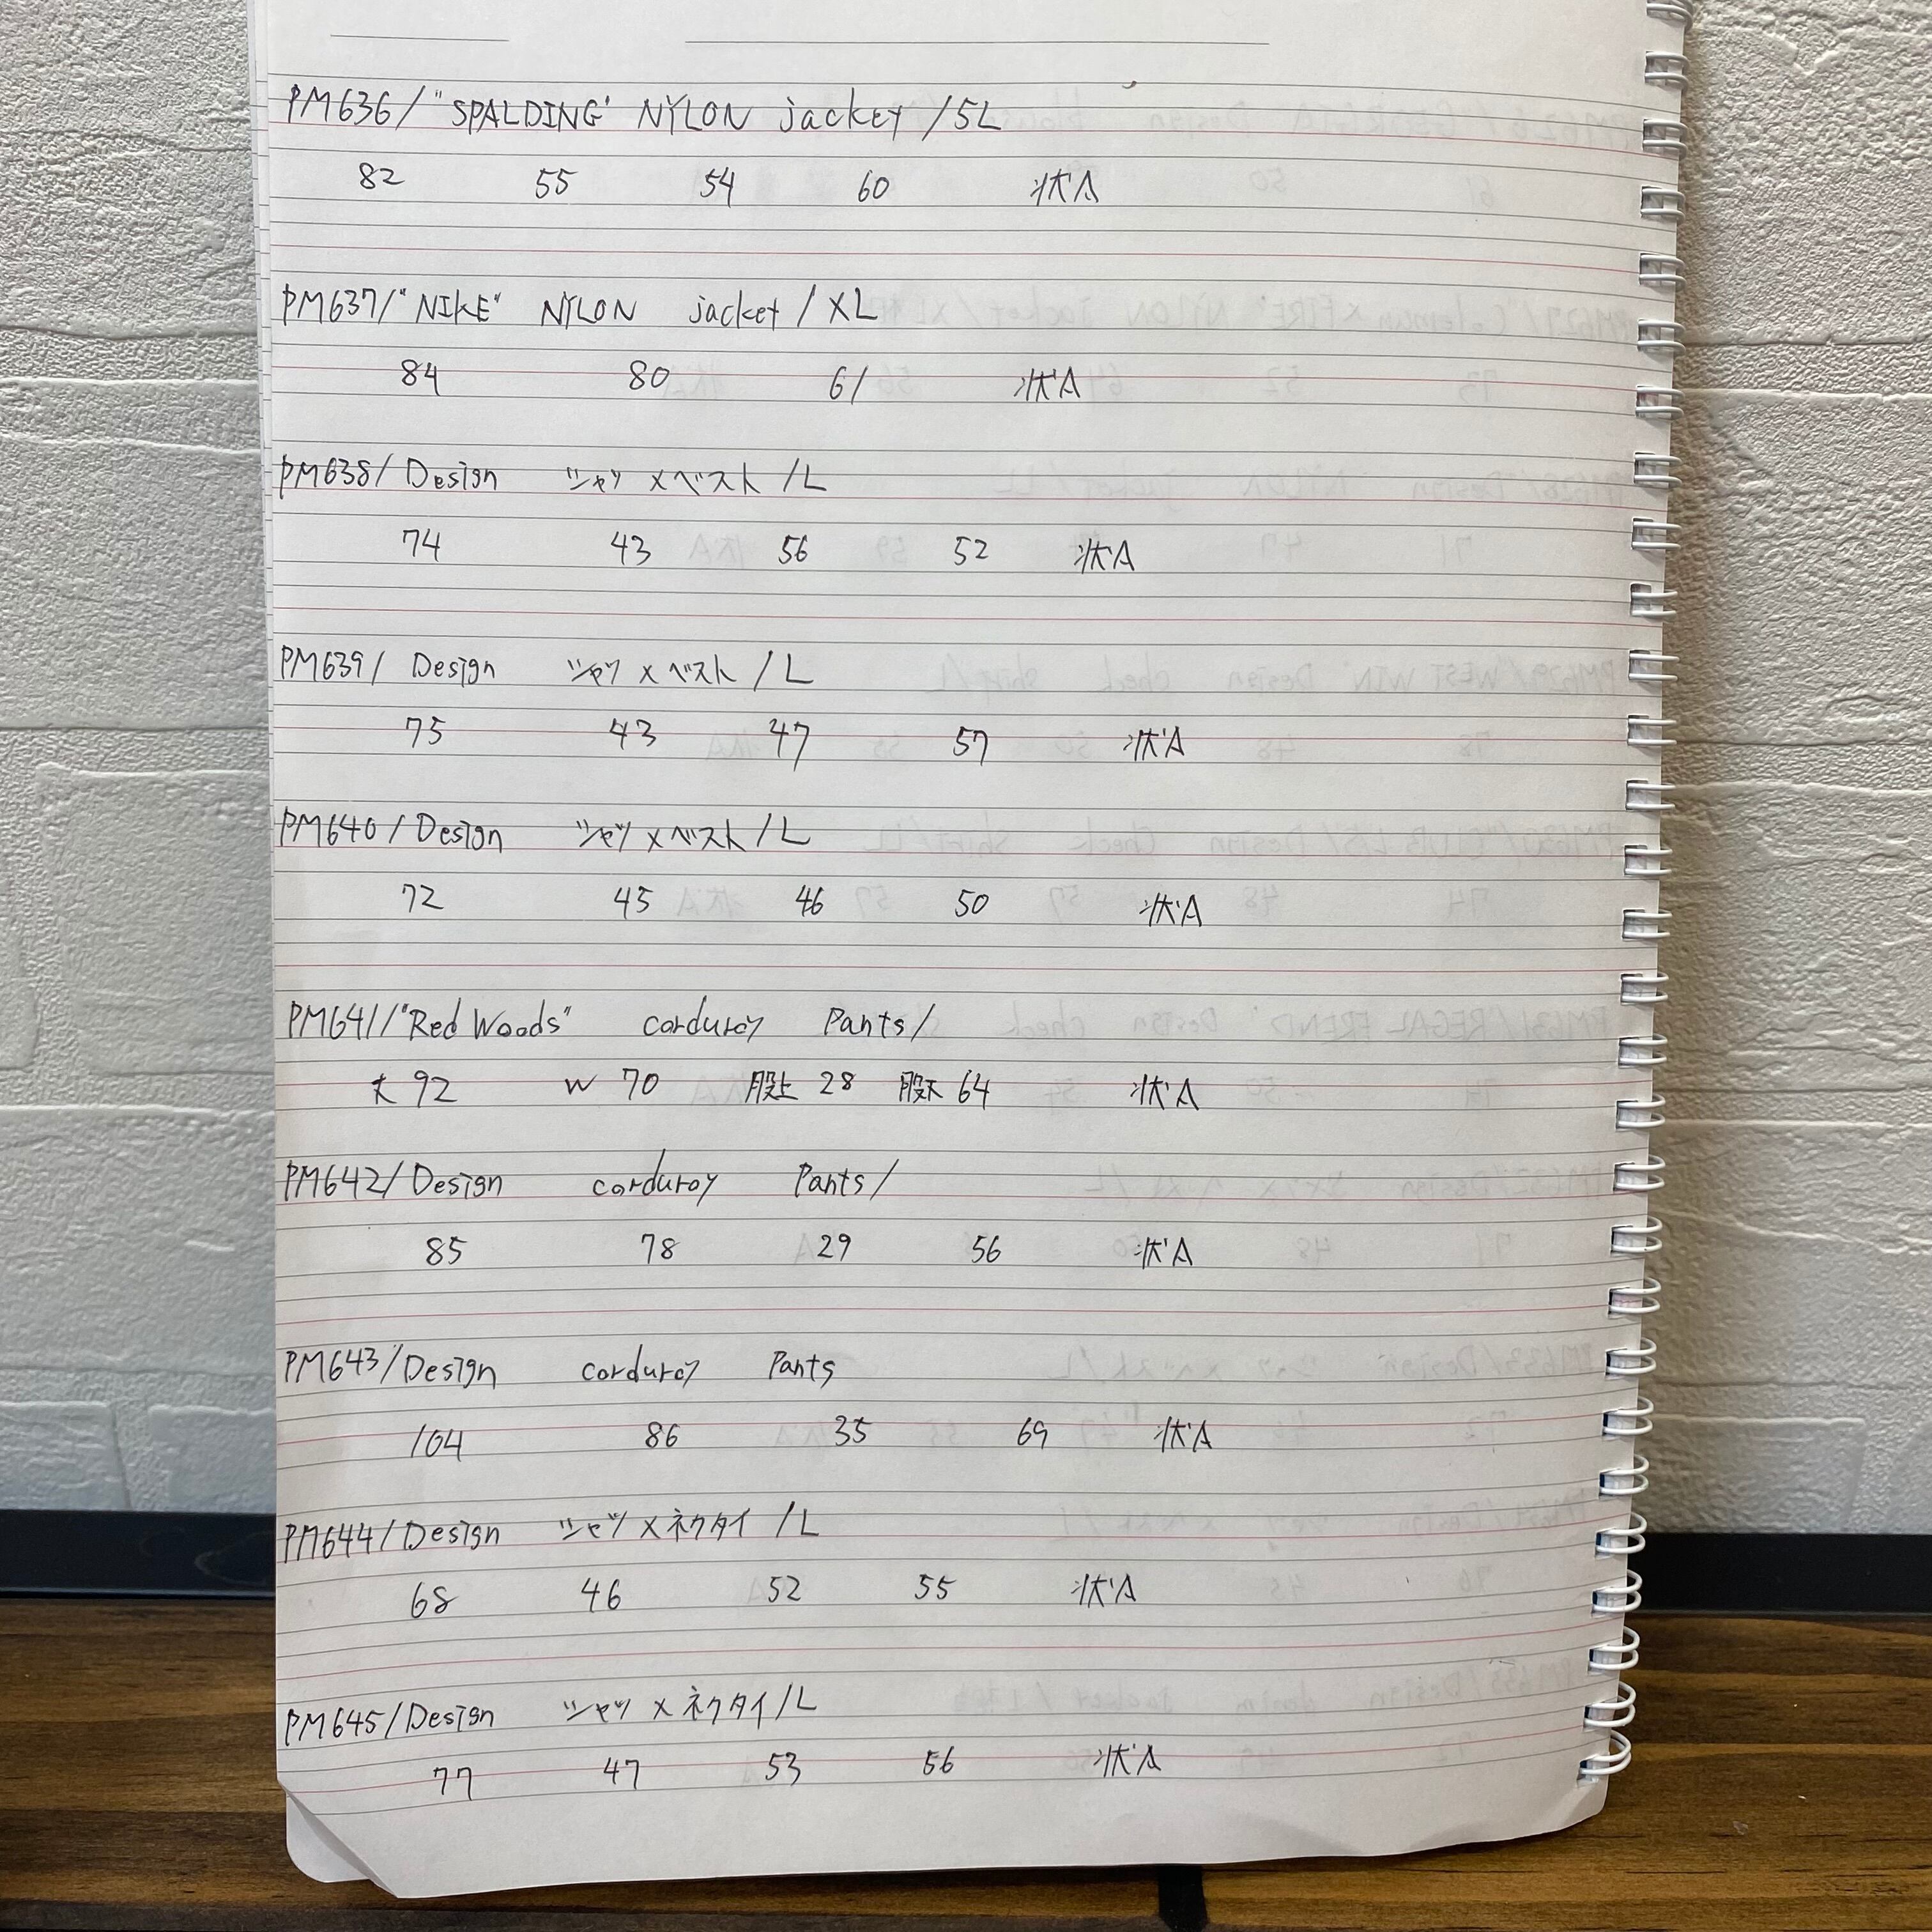 PM636/"SPALDING" NYLON jacket/5L
82 55 54 60 状A
PM637/"NIKE" NYLON jacket/XL
84 80 61 状A
PM638/Design シャツ×ベスト/L
74 43 56 52 状A
PM639/Design シャツ×ベスト/L
75 43 47 57 状A
PM640/Design シャツ×ベスト/L
72 45 46 50 状A
PM641/"Red Woods" corduroy Pants/
丈 92 W 70 股上 28 股下 64 状A
PM642/Design corduroy Pants/
85 78 29 56 状A
PM643/Design corduroy Pants
104 86 35 69 状A
PM644/Design シャツ×ネクタイ/L
68 46 52 55 状A
PM645/Design シャツ×ネクタイ/L
77 47 53 56 状A